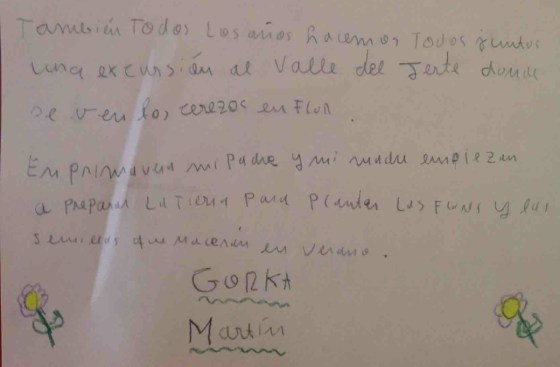 También Todos Los años hacemos Todos juntos
una excursión al Valle del Jerte donde
se ven los cerezos en Flor.
En primavera mi Padre y mi madre empiezan
a preparar La Tierra Para Plantar Las Flores y las
semillas que nacerán en verano.
GORKA
Martín